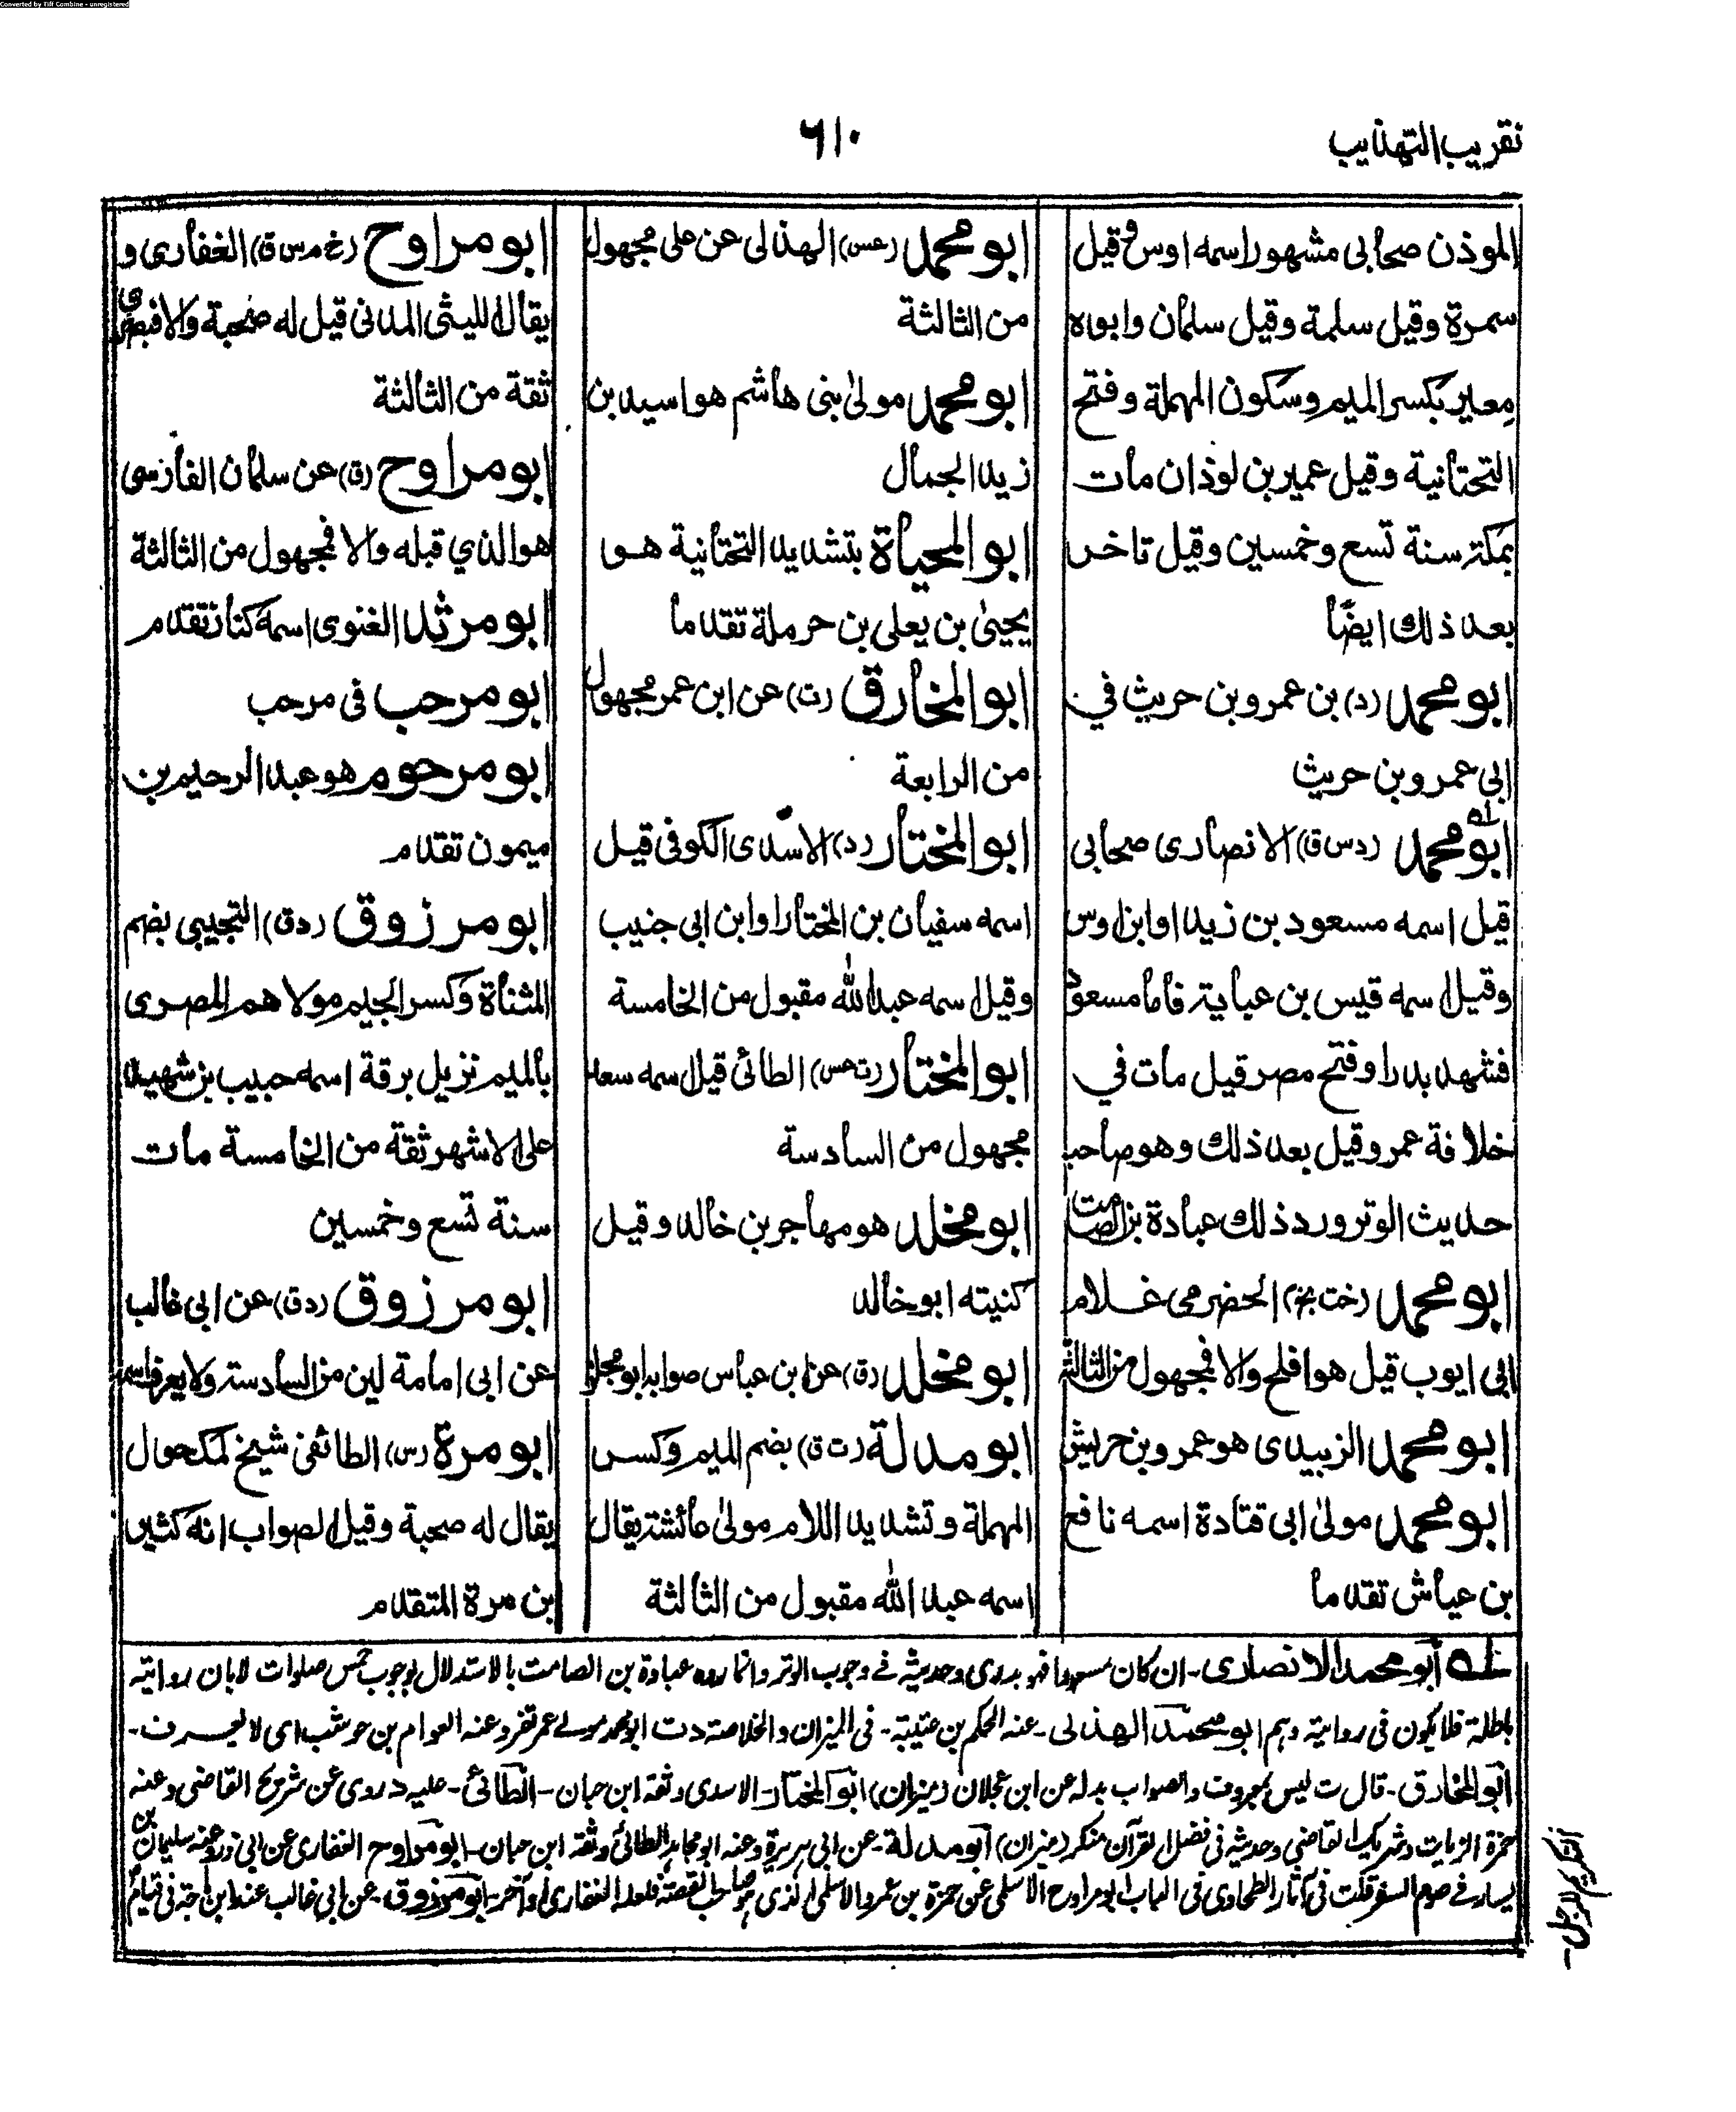 Converted by Tiff Combine - unregistered
تقريب التهذيب
٦١٠
المؤذن صحابى مشهور اسمه اوس وقيل
سمرة وقيل سلمة وقيل سلمان وابوه
معير بكسر الميم وسكون المهملة وفتح
التحتانية وقيل عمير بن لوذان مات
بمكة سنة تسع وخمسين وقيل تاخر
بعد ذلك ايضًا
ابو محمد (د) بن عمرو بن حريث في
ابى عمرو بن حريث
ابو محمد (د س ق) الانصارى صحابى
قيل اسمه مسعود بن زيد او ابن اوس
وقيل اسمه قيس بن عباية فاما مسعود
فشهد بدرا وفتح مصر قيل مات في
خلافة عمر وقيل بعد ذلك وهو صاحب
حديث الوتر ورد ذلك عبادة بن الصامت
ابو محمد (خت م) الحضرمى غلام
ابى ايوب قيل هو افلح والا فمجهول من الثالثة
ابو محمد الزبيدى هو عمرو بن حريش
ابو محمد مولىٰ ابى قتادة اسمه نافع
بن عياش تقدما
ابو محمد (عس) الهذلى عن على مجهول
من الثالثة
ابو محمد مولىٰ بنى هاشم هو اسيد بن
زيد الجمال
ابو المحياة بتشديد التحتانية هو
يحيىٰ بن يعلى بن حرملة تقدما
ابو المخارق (ت) عن ابن عمر مجهول
من الرابعة
ابو المختار (د) الاسدى الكوفى قيل
اسمه سفيان بن المختار او ابن ابى حبيب
وقيل اسمه عبد الله مقبول من الخامسة
ابو المختار (ت عس) الطائى قيل اسمه سعد
مجهول من السادسة
ابو مخلد هو مهاجر بن خالد وقيل
كنيته ابو خالد
ابو مخلد (ق) عن ابن عباس صوابه ابو مجلز
ابو مدلة (ت ق) بضم الميم وكسر
المهملة وتشديد اللام مولىٰ عائشة يقال
اسمه عبد الله مقبول من الثالثة
ابو مراوح (خ م س ق) الغفارى و
يقال الليثى المدنى قيل له صحبة والا فبصرى
ثقة من الثالثة
ابو مراوح (ق) عن سلمان الفارسى
هو الذي قبله والا فمجهول من الثالثة
ابو مرثد الغنوى اسمه كناز تقدم
ابو مرحب فى مرحب
ابو مرحوم هو عبد الرحيم بن
ميمون تقدم
ابو مرزوق (د ق) التجيبى بضم
المثناة وكسر الجيم مولاهم المصرى
بالميم نزيل برقة اسمه حبيب بن شهيد
على الاشهر ثقة من الخامسة مات
سنة تسع وخمسين
ابو مرزوق (د ق) عن ابى غالب
عن ابى امامة لين من السادسة ولا يعرف اسمه
ابو مرة (س) الطائفى شيخ لمكحول
يقال له صحبة وقيل الصواب انه كثير
بن مرة المتقدم
له ابو محمد الانصارى - ان كان مسعودا فهو بدرى وحديثه فى وجوب الوتر وانما رده عبادة بن الصامت بالاستدلال بوجوب خمس صلوات لا بان روايته
باطلة فلا يكون فى روايته وهم ابو محمد الهذلى - عنه الحكم بن عتيبة - فى الميزان والخلاصة دت ابو محمد مولے عمر تفرد عنه العوام بن حوشب اى لا يعرف -
ابو المخارق - قال ت ليس بمعروف والصواب بدله عن ابن عجلان (ميزان) ابو المختار الاسدى وثقه ابن حبان - الطائى - عليه د روى عن شريح القاضى وعنه
حمزة الزيات وشريك القاضى وحديثه فى فضل القرآن منكر (ميزان) ابو مدلة - عن ابى هريرة وعنه ابو مجاهد الطائى وثقه ابن حبان - ابو مراوح الغفارى عن ابى ذر وعنه سليمان بن
يسار فى صوم السفر قلت فى آثار الطحاوى فى الباب ابو مراوح الاسلمى عن حمزة بن عمرو الاسلمى الذى هو صاحب القصة فلعله الغفارى او آخر - ابو مرزوق - عن ابى غالب عند ابن ماجة فى قيام